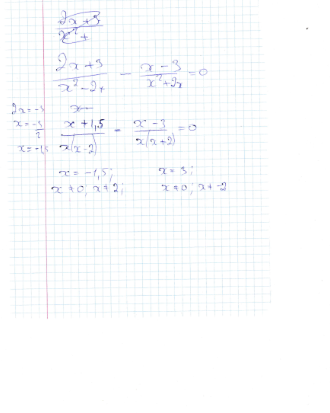 2x+3
x²+
(2x+3)/(x²-2x) - (x-3)/(x²+2x) = 0
2x=-3
x=-3/2
x=-1,5
(x+1,5)/(x(x-2)) - (x-3)/(x(x+2)) = 0
x=-1,5; x=3;
x≠0; x≠2; x≠0; x≠-2